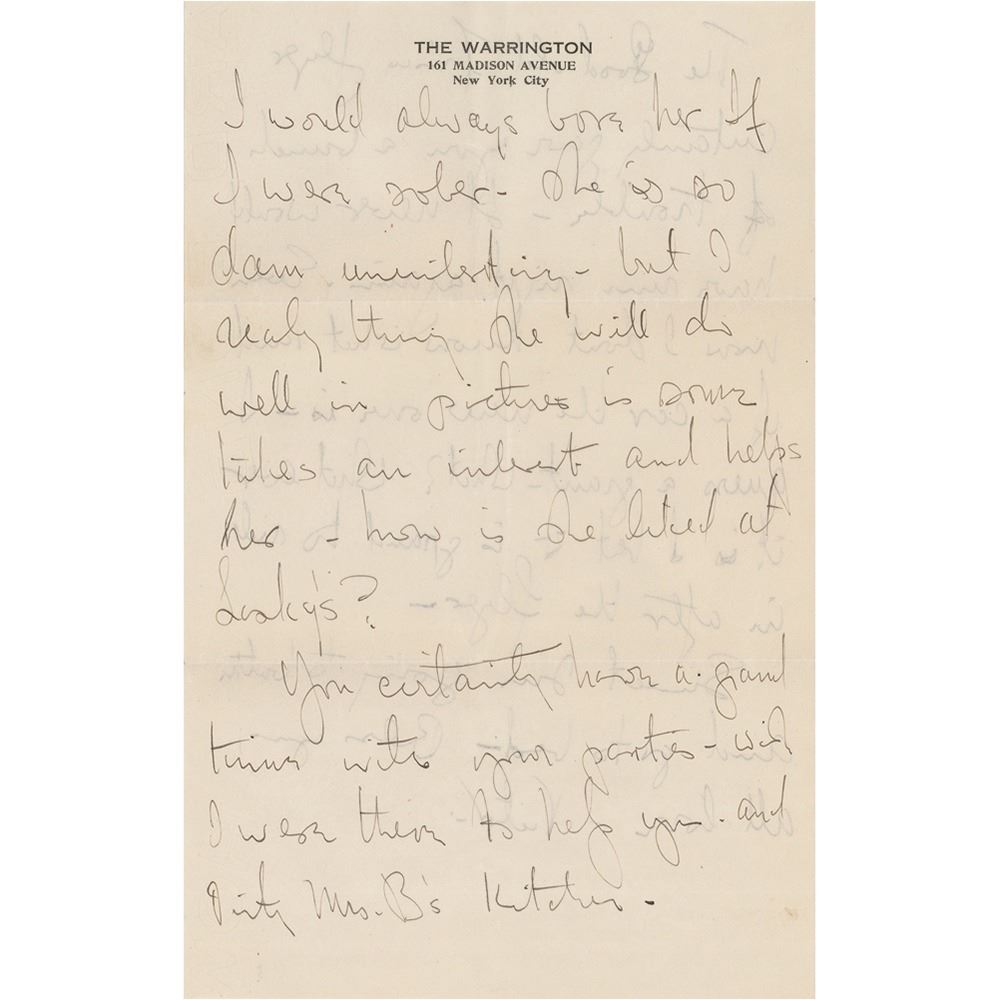 THE WARRINGTON
161 MADISON AVENUE
New York City
I would always bore her If
I were sober - She is so
damn uninteresting - but I
realy thing she will do
well in pictures is some
takes an interest and helps
her - how is she liked at
Lasky's?
You certainly have a grand
time with your parties - wish
I were there to help you - and
Dirty Mrs. B's Kitchen -